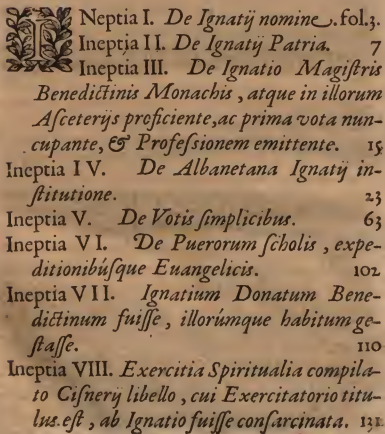 INeptia I. De Ignatij nomine. fol.3.
Ineptia II. De Ignatij Patria. 7
Ineptia III. De Ignatio Magiſtris
Benedictinis Monachis, atque in illorum
Aſceterijs proficiente, ac prima vota nun-
cupante, & Profeſſionem emittente. 15
Ineptia IV. De Albanetana Ignatij in-
ſtitutione. 23
Ineptia V. De Votis ſimplicibus. 63
Ineptia VI. De Puerorum ſcholis, expe-
ditionibúſque Euangelicis. 102
Ineptia VII. Ignatium Donatum Bene-
dictinum fuiſſe, illorúmque habitum ge-
ſtaſſe. 110
Ineptia VIII. Exercitia Spiritualia compila-
to Ciſnerij libello, cui Exercitatorio titu-
lus eſt, ab Ignatio fuiſſe conſarcinata. 131